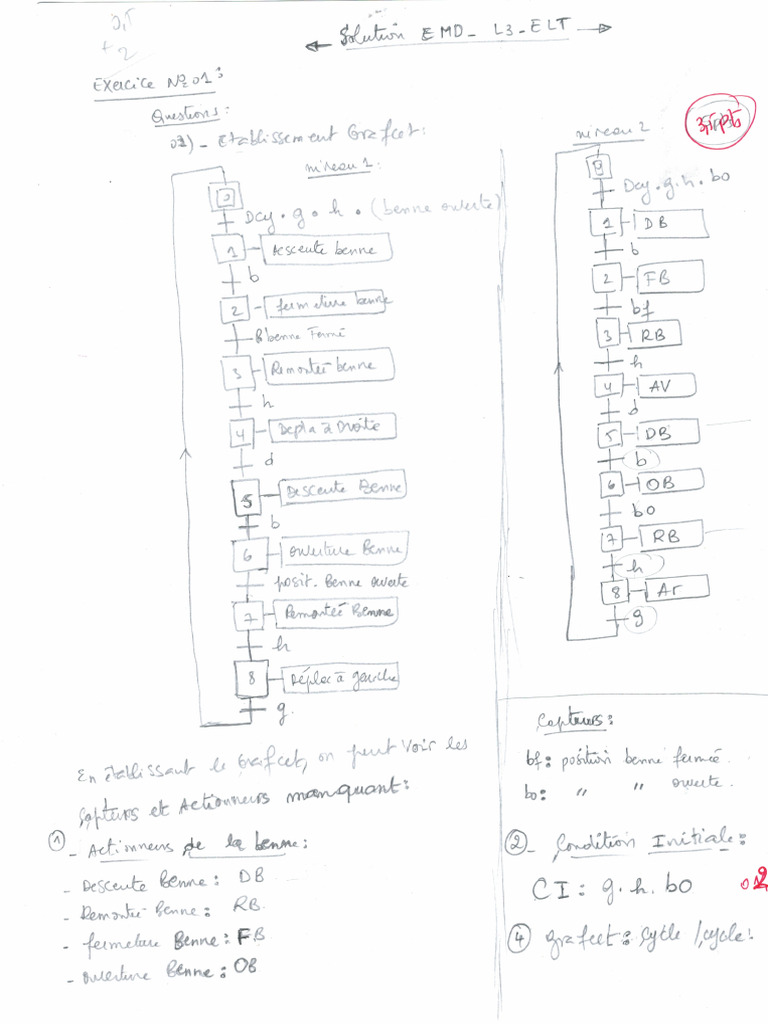 0,5
+ 2
Solution EMD_ L3_ELT
Exercice N° 01:
Questions:
01)_ Etablissement Grafcet:
niveau 1:
0
Dcy . g . h . (benne ouverte)
1 Descente benne
b
2 fermeture benne
benne Fermé
3 Remonteé benne
h
4 Depla à Droite
d
5 Descente Benne
b
6 ouverture Benne
posit. Benne ouverte
7 Remonteé Benne
h
8 Déplac à gauche
g.
niveau 2
3,5 pts
0
Dcy . g . h . bo
1 DB
b
2 FB
bf
3 RB
h
4 AV
d
5 DB
b
6 OB
bo
7 RB
h
8 Ar
g
En établissant le Grafcet, on peut voir les
Capteurs et Actionneurs manquant:
① _ Actionneurs de la benne:
- Descente Benne: DB
- Remonteé Benne: RB
- fermeture Benne: FB
- Ouverture Benne: OB
Capteurs:
bf: position benne fermeé.
bo: " " ouverte.
②_ Condition Initiale:
CI: g.h.bo
④ grafcet: cycle /cycle: